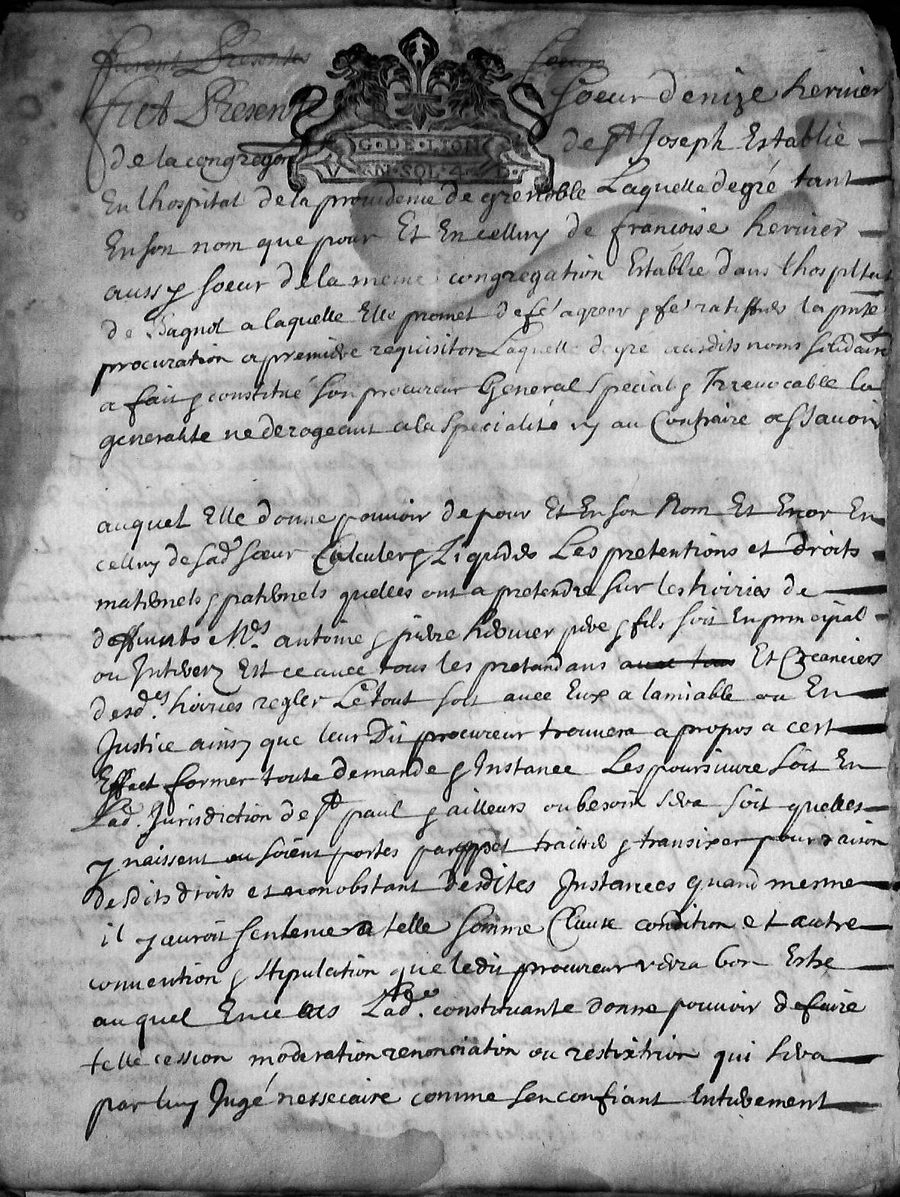 furent Presentes soeur
fut Presente Soeur denize hermier
G. DE. LYON
de la congregon de St Joseph Establie
VN. SOL. 4. D.
En lhospital de la providence de grenoble Laquelle de gré tant
En son nom que pour Et En celluy de francoise hermier
aussy soeur de la meme congregation Establie dans lhospital
de Bagnol a laquelle Elle promet de fe agreer & fe ratiffier la pnte
procuration a premiere requisiton Laquelle de gre ausdits noms solidaire
a fait & constitué son procureur General special & Irrevocable la
generalite ne derogeant a la specialité ny au Contraire a Scavoir
auquel Elle donne pouvoir de pour Et En son Nom Et Encor En
celluy de sad soeur Calculer & Liquider Les pretentions et droits
maternels & paternels quelles ont a pretendre sur les hoiries de
deffunts Mrs antoine & pierre hermier pere & fils soit En principal
ou Interez Est ce avec tous les pretandans avec tous Et Creanciers
desd. hoiries regler Le tout soit avec Eux a lamiable ou En
Justice ainsy que leur Dit procureur trouvera a propos a cert
Effect former toute demande & Instance Les poursuivre soit En
Lad. Jurisdiction de St paul & ailleurs ou besoin sera soit quelles
y naissent ou soient portes par appel traiter & transixer pour raison
desdits droits et nonobstant desdites Instances quand mesme
il y auroit sentence a telle somme Clause condition et autre
convention & stipulation que ledit procureur verra bon Estre
auquel En ce cas Lade. constituante donne pouvoir de faire
telle cession moderation renonciation ou restixtion qui sera
par luy Jugé nessecaire comme sen confiant Entierement